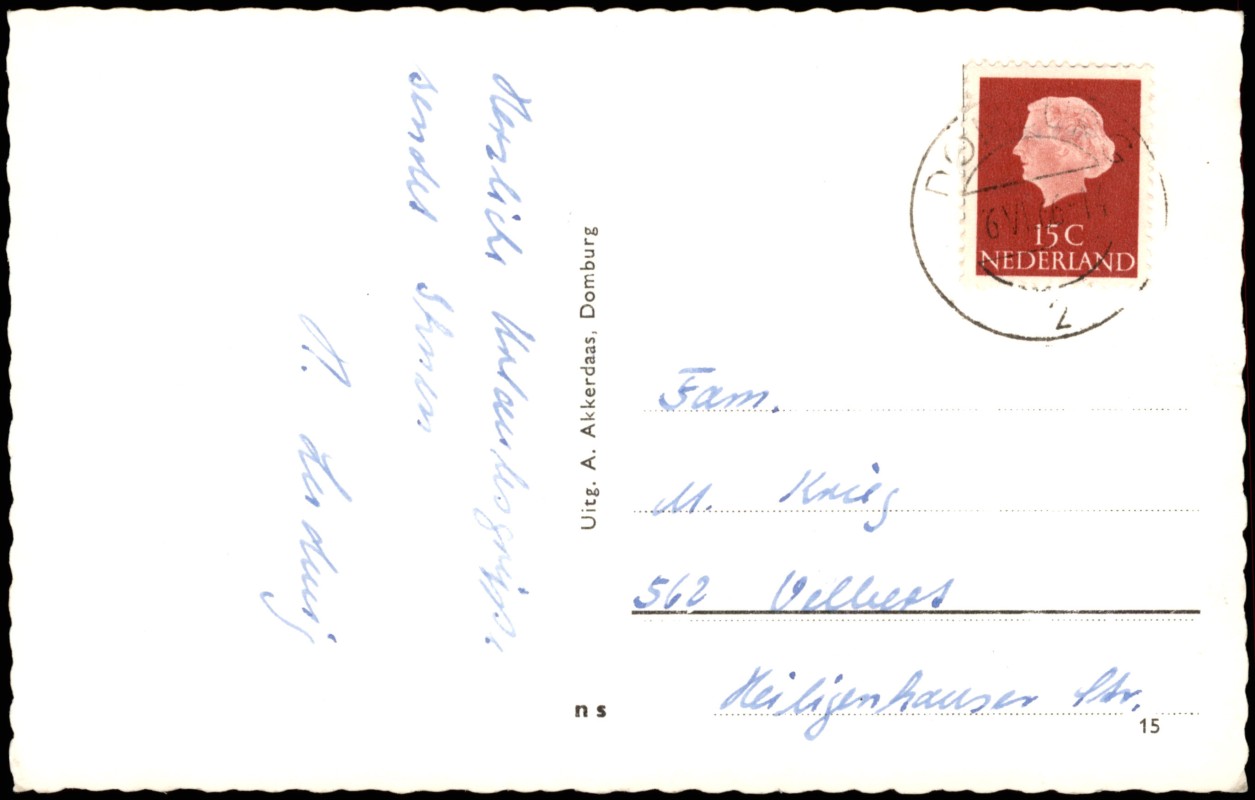 Herzliche Urlaubsgrüße
sendet Ihnen
H.
Uitg. A. Akkerdaas, Domburg
n s
15 C
NEDERLAND
2
Fam.
M. Krieg
562 Velbert
Heiligenhauser Str.
15